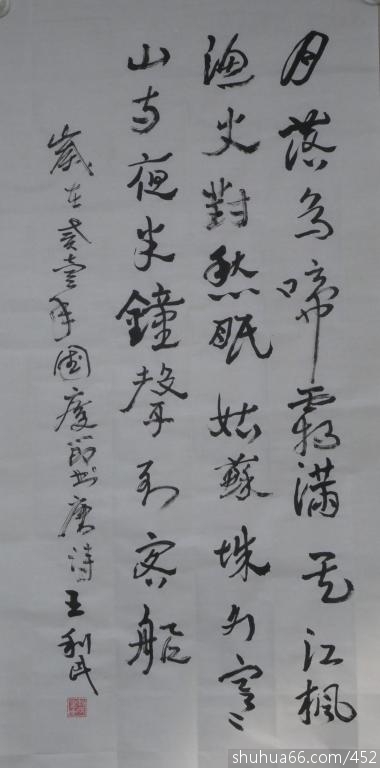 月落烏啼霜滿天江楓
漁火對愁眠姑蘇城外寒
山寺夜半鐘聲到客船
歲在貳壹年國慶節书唐詩王利民
shuhua66.com/452